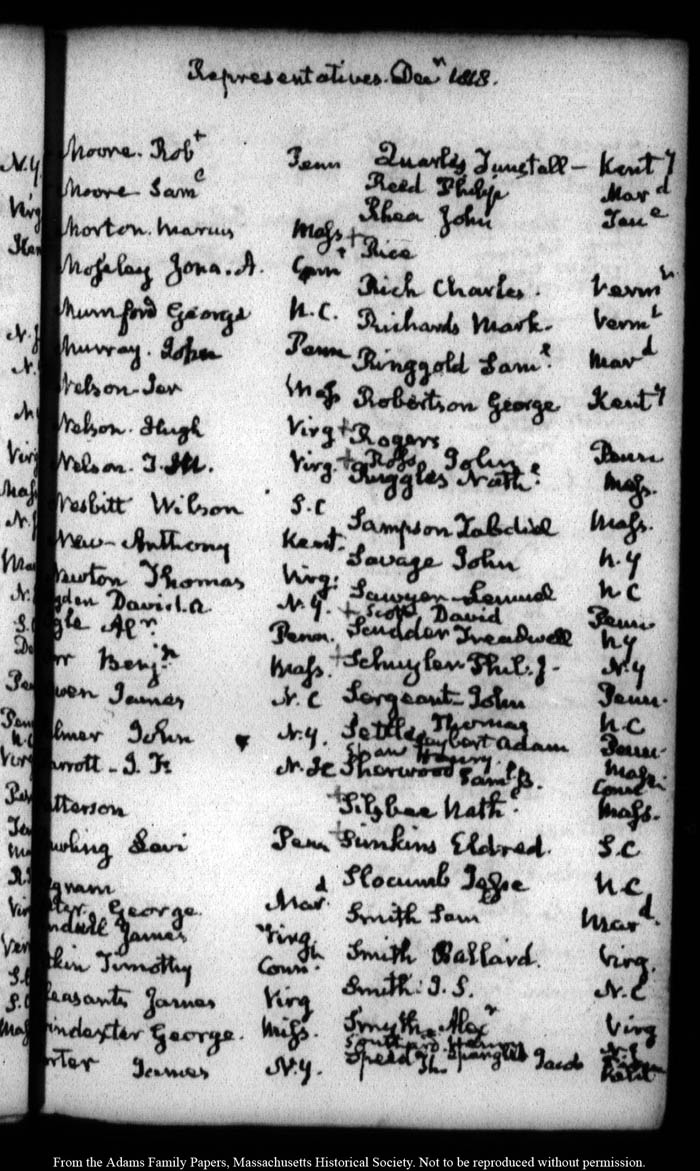 Representatives. Decr 1818.
Moore. Robt Penn
Moore Saml
Morton. Marcus Mass
Moseley Jona. A. Conn
Mumford George N.C.
Murray. John Penn
Nelson Jer Mass
Nelson. Hugh Virg
Nelson. T. M. Virg.
Nesbitt Wilson S.C
New Anthony Kent.
Newton Thomas Virg.
gden David. A N.Y.
gle Alr. Penn.
rr Benjn Mass.
wen James N.C
lmer John N.Y.
arrott - J. F.
tterson
wling Levi Penn
egram
ter George Mard
ndall James Virg
kin Timothy Conn.
leasants James Virg
indexter George. Miss.
orter James N.Y.
Quarles Tunstall - Kenty
Reed Philip Mard
Rhea John Tene
+ Rice
Rich Charles. Vermt
Richards Mark. Vermt
Ringgold Saml. Mard
Robertson George Kenty
+ Rogers
+ Ross John Penn
Ruggles Nathl. Mass.
Sampson Zabdiel Mass.
Savage John N.Y
Sawyer Lemuel N C
+ Scott David Penn
Scudder Treadwell N Y
+ Schuyler Phil. J. N.Y
Sergeant John Penn.
Settle Thomas N.C
Seybert Adam Penn.
Shaw Henry. Mass.
Sherwood Saml. B. Conn
+ Silsbee Nathl Mass.
+ Simkins Eldred. S.C
Slocumb Jesse N.C
Smith Sam Mard.
Smith Ballard. Virg.
Smith. J. S. N.C
Smyth Alexr Virg
Southard Henry N.J
Spangler Jacob Penn
Speed Th. Kent
N.Y
Virg
N.J
Virg
Mass
From the Adams Family Papers, Massachusetts Historical Society. Not to be reproduced without permission.